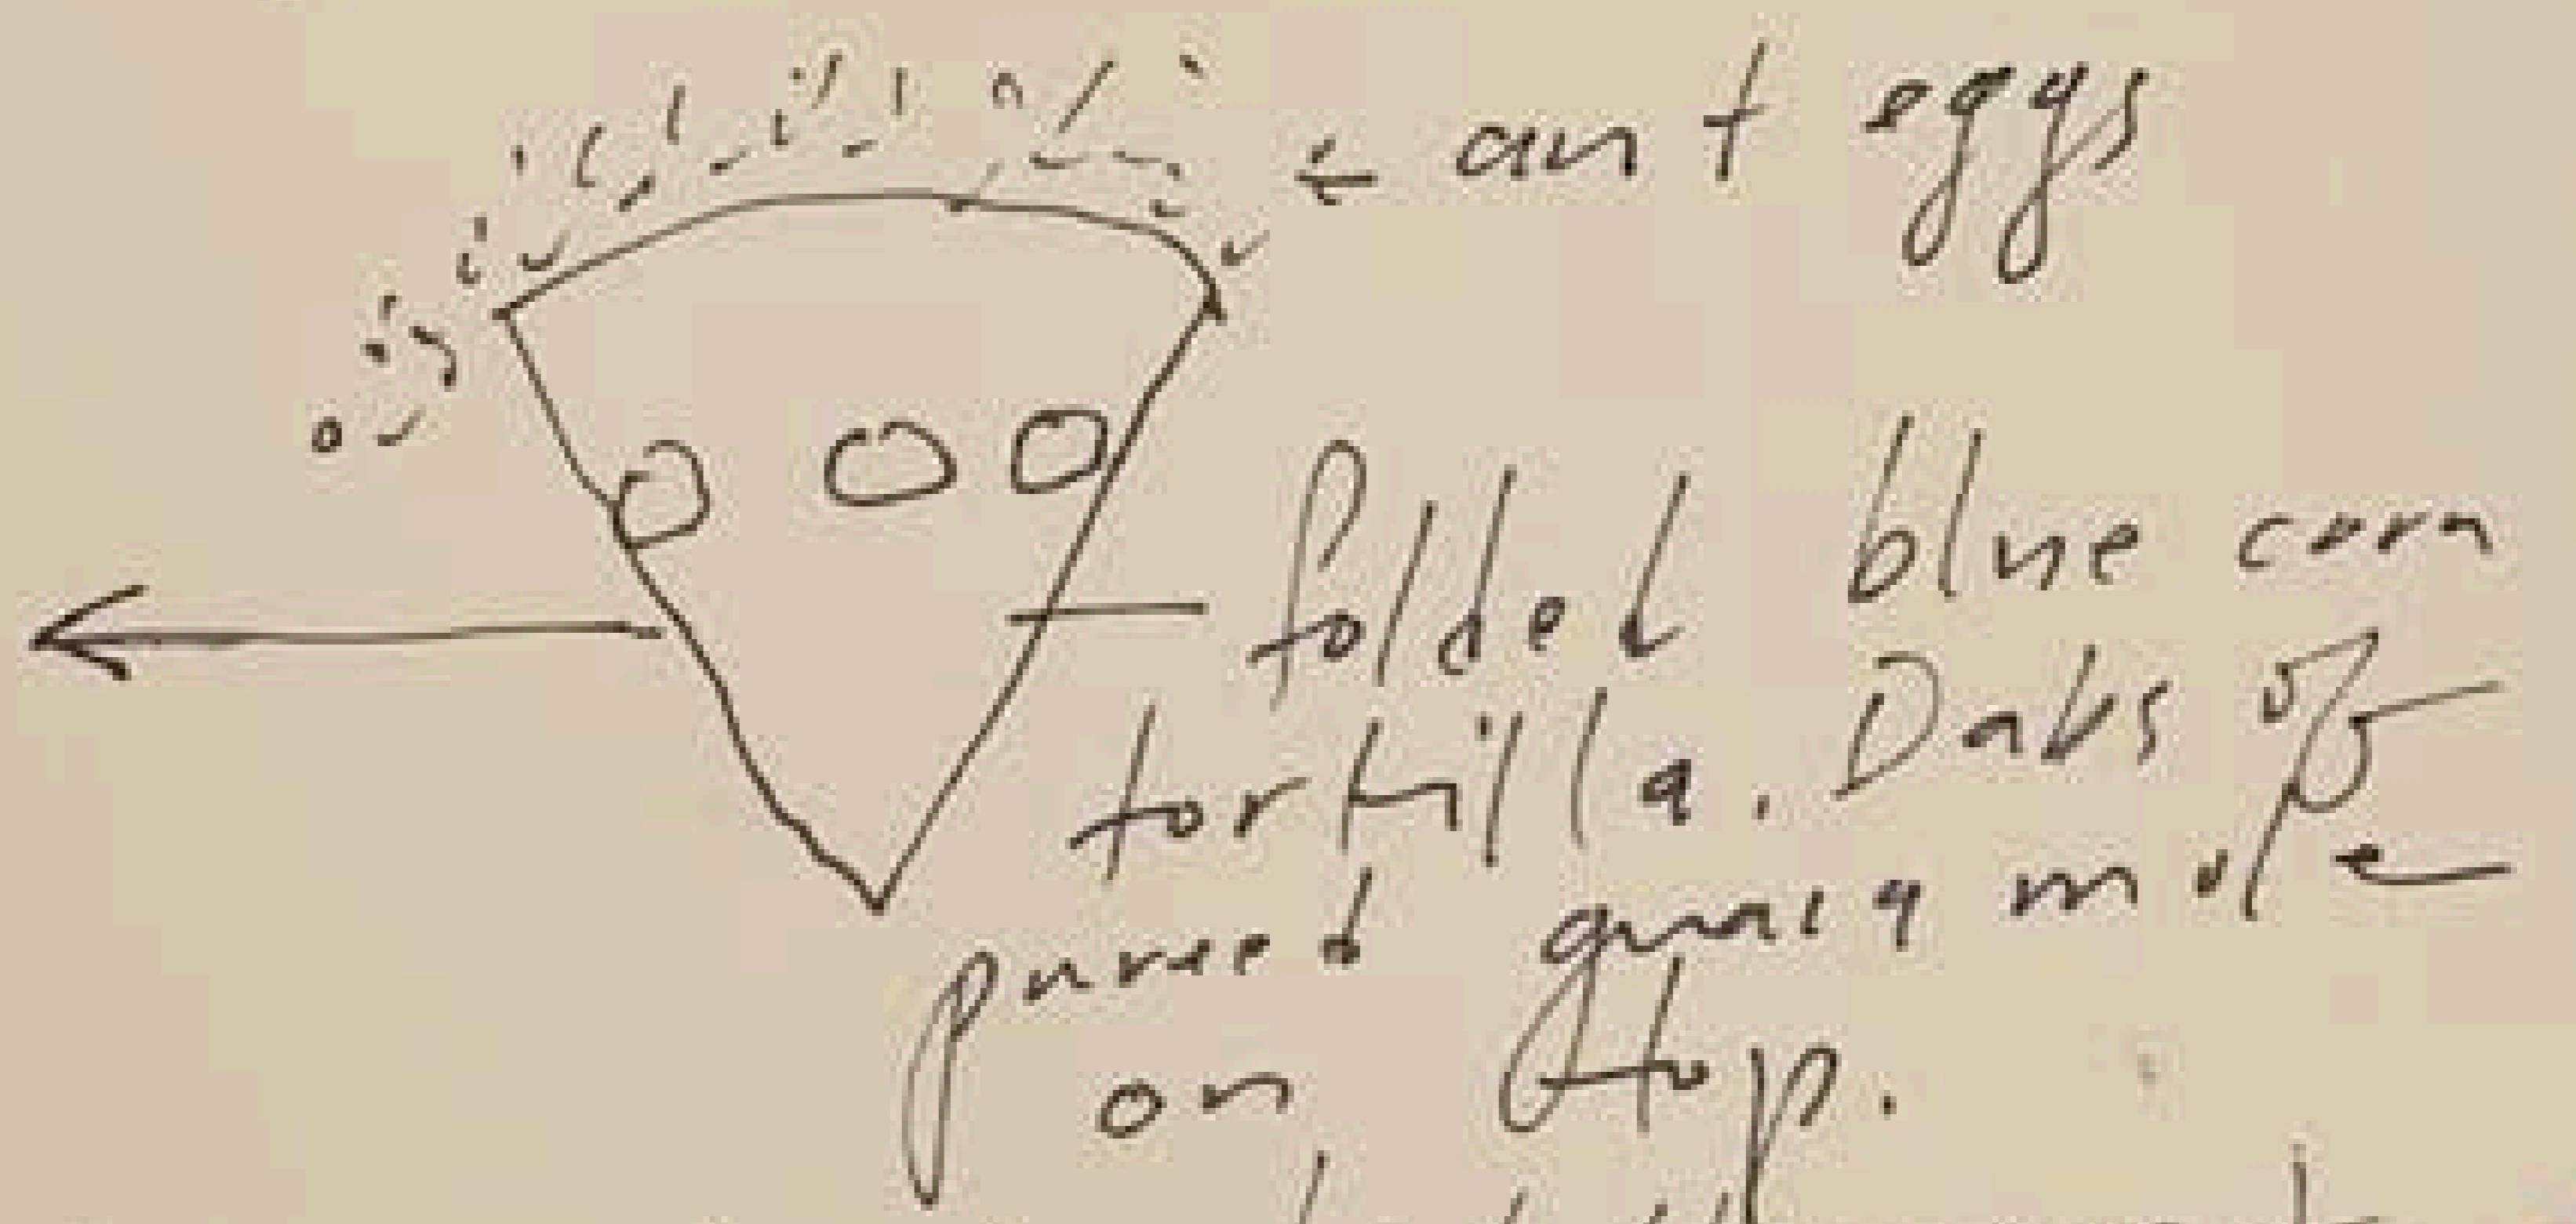 ← ant eggs
folded blue corn
tortilla. Dabs of
pureed guacamole
on top.